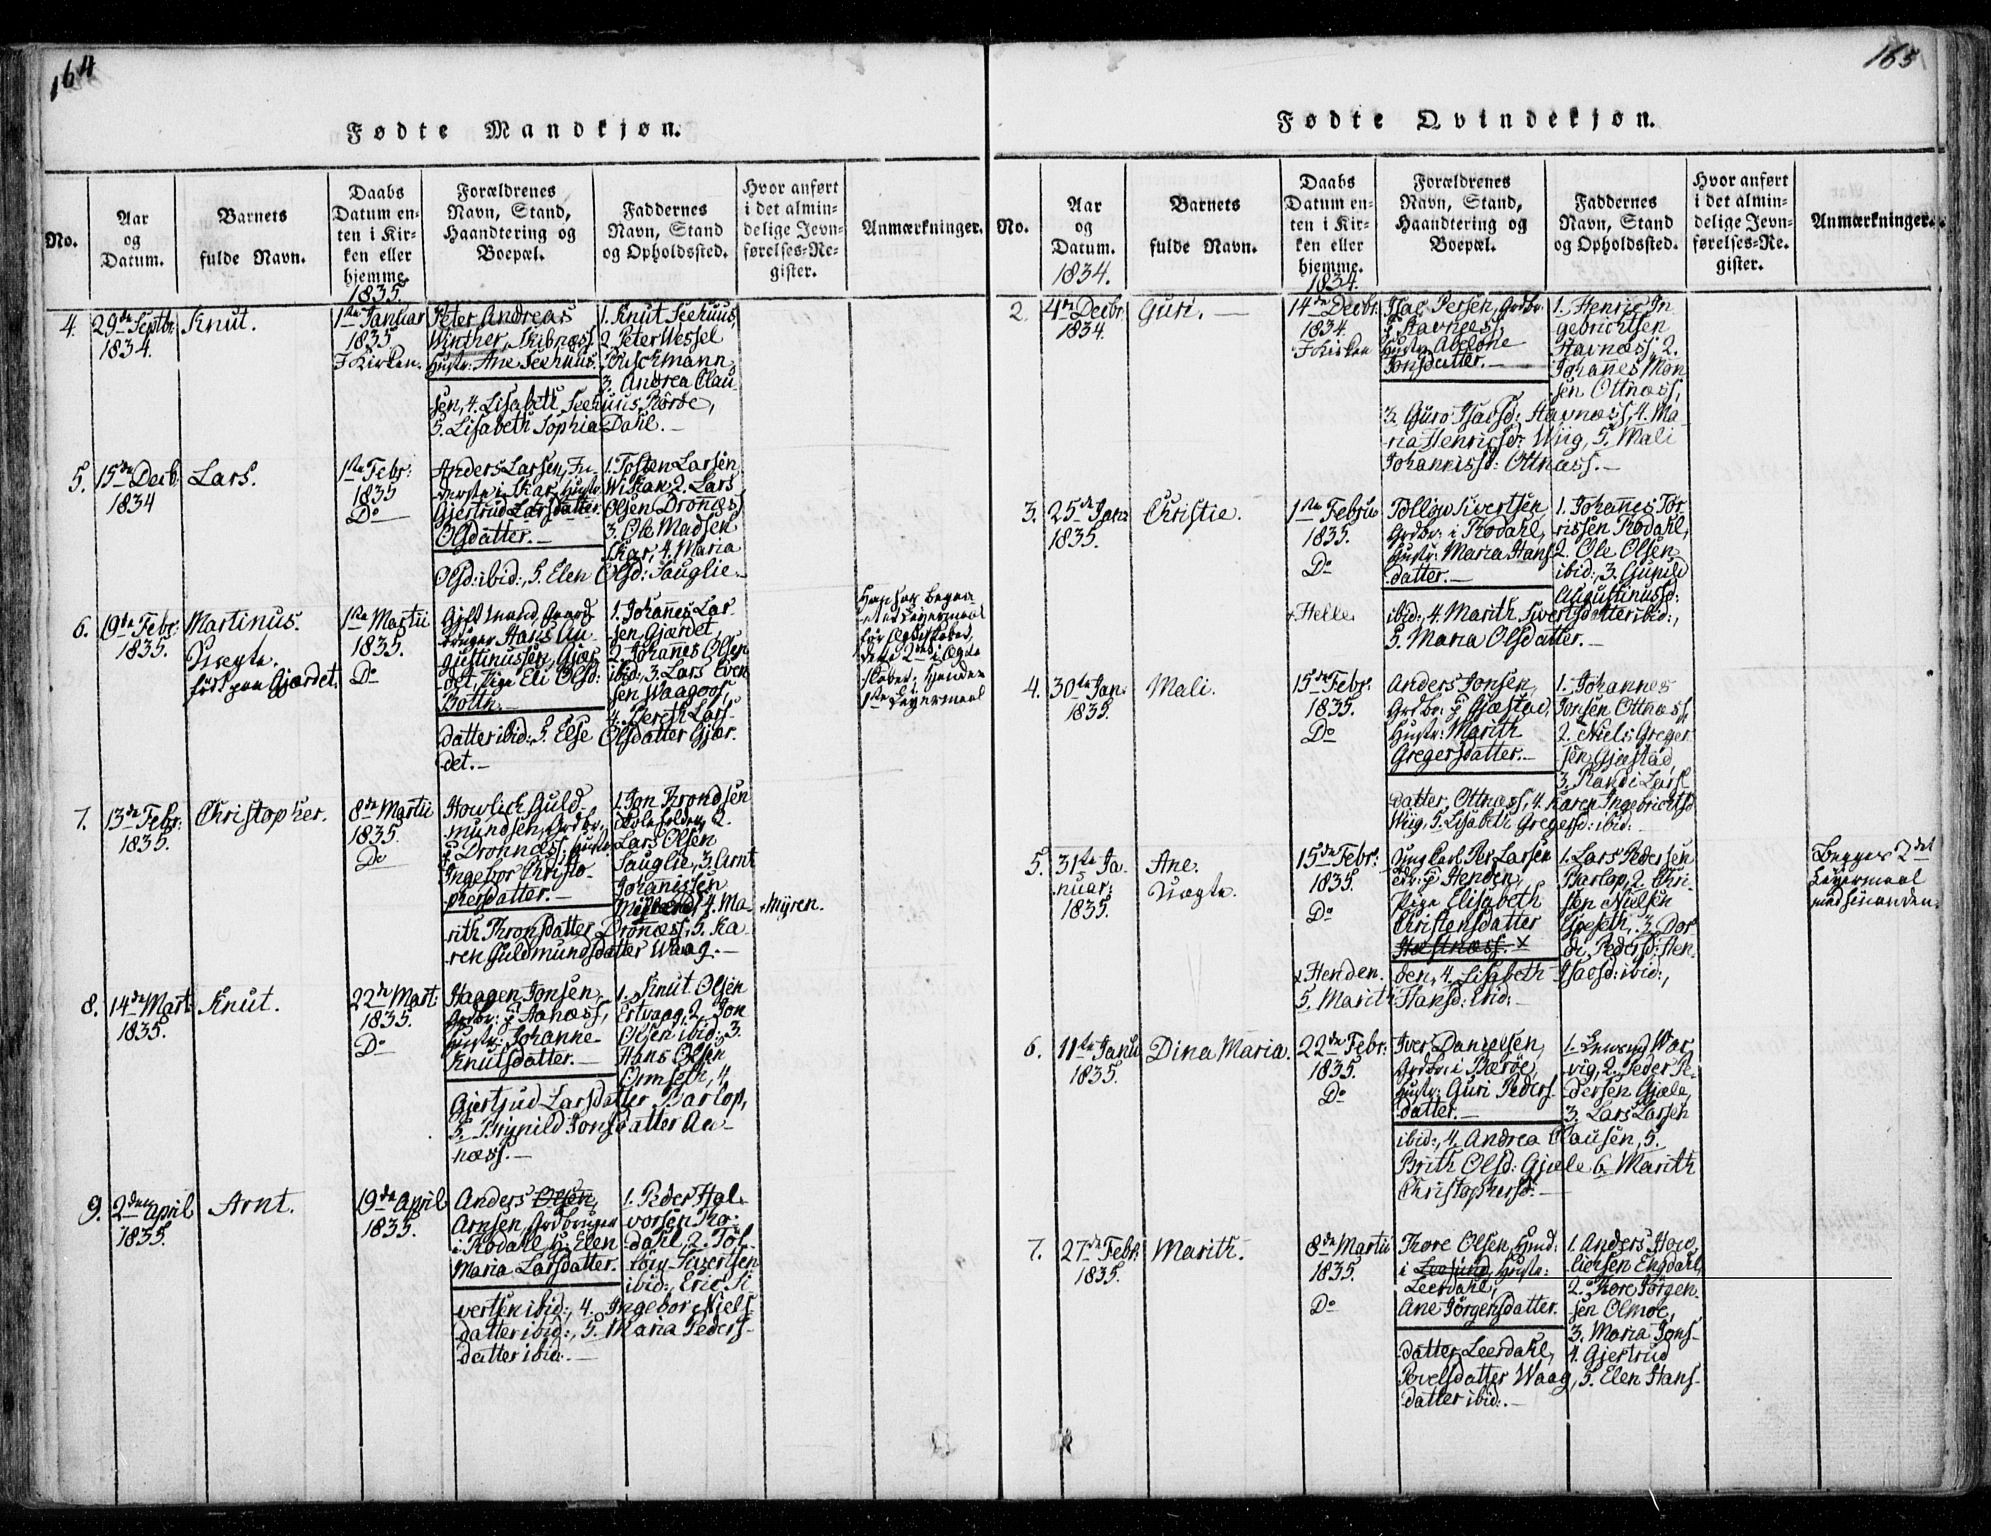 164
Fødte Mandkjøn.
No.
Aar
og
Datum.
Barnets
fulde Navn.
Daabs
Datum en-
ten i Kir-
ken eller
hjemme.
1835.
Forældrenes
Navn, Stand,
Haandtering og
Boepæl.
Faddernes
Navn, Stand
og Opholdssted.
Hvor anført
i det almin-
delige Jevn-
førelses-Re-
gister.
Anmærkninger.
4.
29de Septbr
1834.
Knut.
1ste Januar
1835
I Kirken.
Peter Andreas
Winther, Skibnæss
Hustr: Ane Seehuus.
1. Knut Seehuus,
2. Peter Wessel
Buschmann,
3. Andrea Clau
sen, 4. Lisabeth Seehuus Rørøe,
5. Lisabeth Sophia Dahl.
5.
15de Decb
1834
Lars.
1ste Febr:
1835
Do
Anders Larsen, In-
derste i Skar, Hustr
Gjertrud Larsdatter
Olsdatter.
1. Tosten Larsen
Wikan 2. Lars
Olsen Dronæs,
3. Ole Madsen
Skar, 4. Maria
Olsd: ibid:, 5. Elen Olsd: Sauglie.
6.
19de Febr:
1835.
Martinus.
Uægte.
født paa Gjærdet.
1ste Martii
1835.
Do
Gift Mand Gaard
bruger Hans Au
gustinussen, Gjær
det, Pige Eli Olsd:
Bottn.
1. Johannes Lar-
sen Gjærdet
2. Johannes Olsen
ibid:, 3. Lars Even
sen Waagoos,
4. Bereth Lars-
datter ibid:, 5. Else Olsdatter Gjær.
det.
Han har begaa-
et et Leiermaal
før Ægteskabet,
dette 2det i Ægte
skabet; hendes
1ste Leiermaal
7.
13de Febr:
1835.
Christopher.
8de Martii
1835.
Do
Howlich Guld-
mundsen, Grdbr.
p. Dronnæss; Hustr
Ingebor Christo-
phersdatter.
1. Jon Trondsen
Skoleholder, 2.
Lars Olsen
Sauglie, 3. Arnt
Johannissen
4. Ma-
+ Myren.
rith Tronsdatter Dronæss, 5. Ka-
ren Guldmundsdatter Waag.
8.
14de Mart:
1835.
Knut.
22de Mart:
1835.
Do
Haagen Jonsen,
Grdbr: p. Aanæss,
Hustr: Johanne
Knutsdatter.
1. Knut Olsen
Ertvaag, 2. Jon
Olsen ibid:, 3.
Hans Olsen
Ormseth, 4.
Gjertrud Larsdatter Barlop,
5. Brynild Jonsdatter Aa-
næss.
9.
2den April
1835.
Arnt.
19de April
1835.
Anders Olsen,
Arnsen, Grdbruger
i Rodahl, H: Elen
Maria Larsdatter.
1. Peder Hal-
vorsen Ro-
dahl, 2. Tol-
low Sivertsen
ibid:, Eric Si
vertsen ibid:, 4. Ingebor Niels
datter ibid:, 5. Maria Peders-
datter ibid:.
165
Fødte Qvindekjøn.
No.
Aar
og
Datum.
1834.
Barnets
fulde Navn.
Daabs
Datum en-
ten i Kir-
ken eller
hjemme.
1834.
Forældrenes
Navn, Stand,
Haandtering og
Boepæl.
Faddernes
Navn, Stand
og Opholdssted.
Hvor anført
i det almin-
delige Jevn-
førelses-Re-
gister.
Anmærkninger.
2
4de Decbr.
1834.
Guri.
14de Decbr.
1834.
I Kirken
Isac Persen, Grdbr.
p. Stavness,
Hustr: Abelone
Jonsdatter.
1. Henric In
gebrichtsen
Stavnæss, 2.
Johannes Mon
sen Ottnæss,
3. Guro Isacsd: Stavnæss, 4. Ma-
ria Henricsd: Wiig, 5. Mali
Johannissd: Ottnæss.
3.
25de Jan:
1835.
Christie.
1ste Februar
1835.
Do
Tollow Sivertsen
Grdbr: i Rodahl,
Hustr: Maria Hans
datter.
1. Johannes Tor
rissen Rodahl,
2. Ole Olsen
ibid:, 3. Gunild
Augustinussd:
+ Helle
ibid:, 4. Marith Sivertsdatter ibid:,
5. Maria Olsdatter.
4.
30te Jan:
1835.
Mali.
15de Febr:
1835.
Do
Anders Jonsen,
Grdbr: p. Gjæstad,
Hustr: Marith
Gregersdatter.
1. Johannes
Jonsen Ottnæss,
2. Niels Greger
sen Gjæstad,
3. Randi Lars-
datter Ottnæss, 4. Karen Ingebrichtsd
Wiig, 5. Lisabeth Gregersd: ibid:
5.
31te Ja-
nuar:
1835.
Ane.
Uægte.
15de Febr:
1835.
Do
Ung Karl Per Larsen
Grdbr: p. Henden,
Pige Elisabeth
Christensdatter
1. Lars Pedersen
Barlop, 2. Chri-
sen Nielsen
3. Dor
di Pedersd: Hen-
+ Henden.
den, 4. Lisabeth Isacsd: ibid:,
5. Marith Hansd: ibid:
Begges 2det
Leiermaal
med hinanden.
6.
11te Janu
1835.
Dina Maria.
22de Febr:
1835.
Do
Iver Danielsen,
Grdbr: i Bærøe,
Hustr: Guri Peders
datter.
War
vig, 2. Peder Pe-
dersen Gjøle,
3. Lars Larsen
ibid:, 4. Andrea Clausen, 5.
Brith Olsd: Gjøle 6. Marith
Christophersd:
7.
27de Febr:
1835.
Marith.
8de Martii
1835.
Do
Tore Olsen, Huusm:
i Leesund, Hustr:
Leerdahl,
Ane Jørgensdatter.
1. Anders How
lichsen Engdahl,
2. Tore Jørgen
sen Olmøe,
3. Maria Jons-
datter Leerdahl, 4. Gjertrud
Povelsdatter Waag, 5. Elen Hans-
datter ibid: